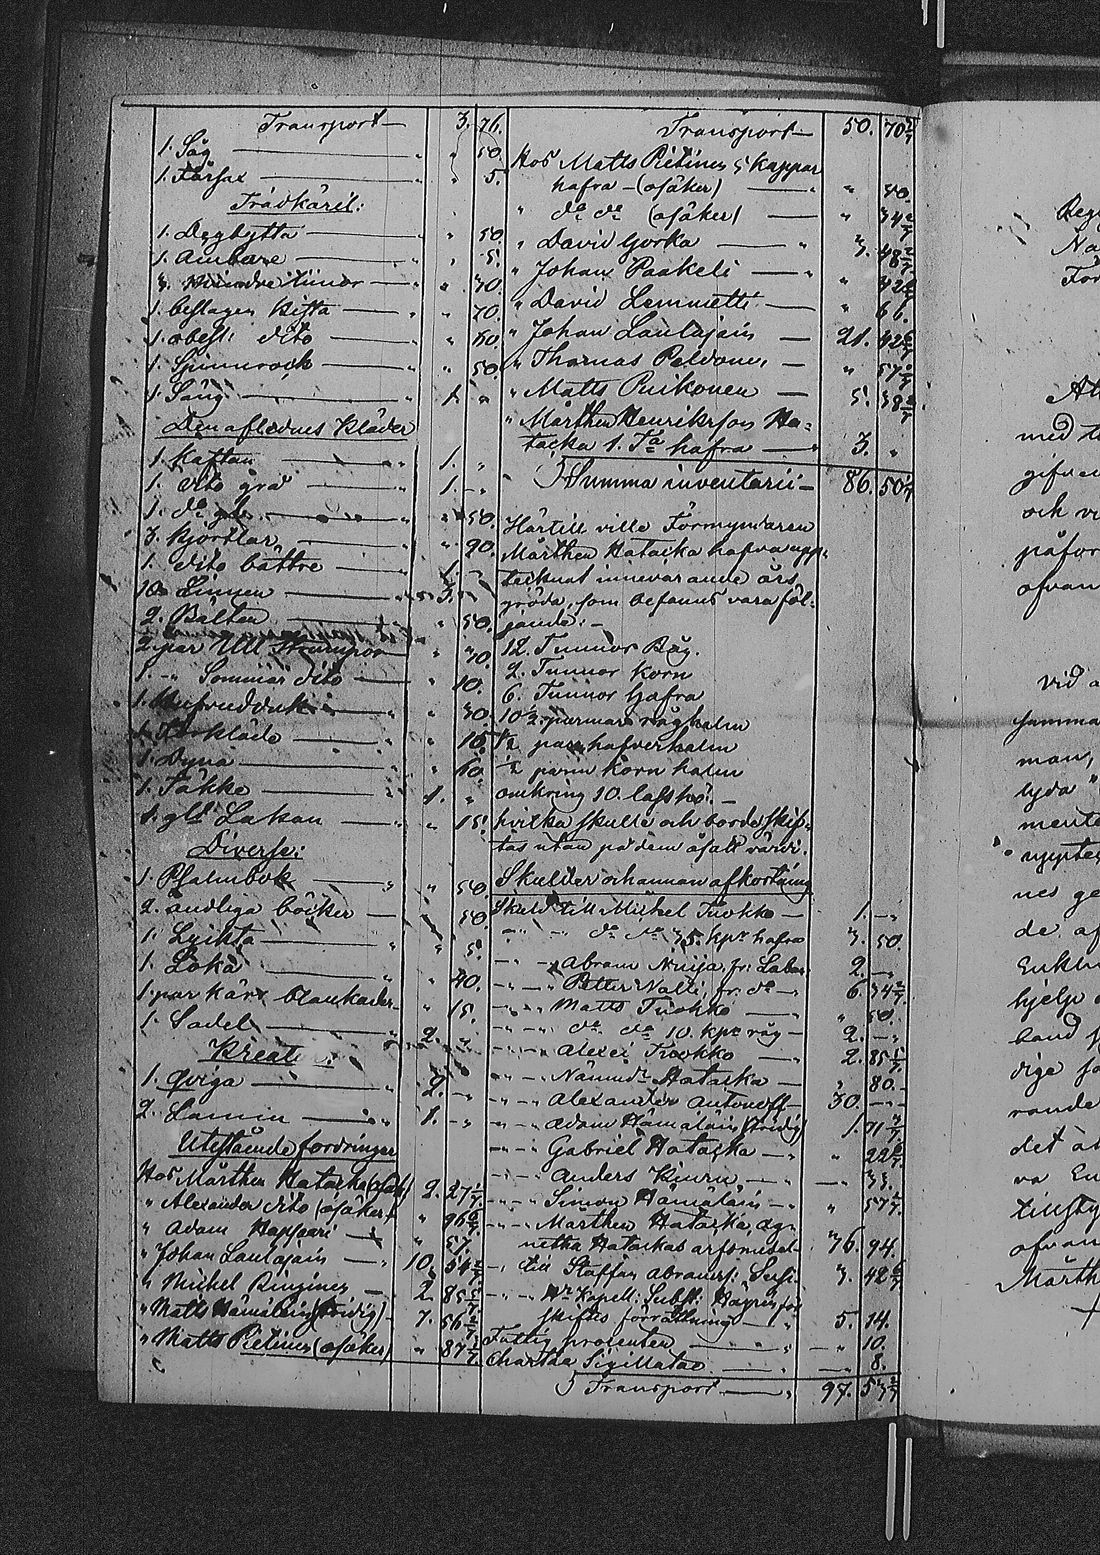 Transport — 3. 76.
1. Såg — " 50.
1. Fårsax — " 5.
Trädkäril:
1. Degbytta — " 50.
1. Ämbare — " 5.
3. mindre tinor — " 30.
1. beslagen Kista — " 70.
1. obesl: dito — " 60.
1. Spinnrock — " 50.
1. Säng — 1. "
Den aflednes Kläder
1. Kaftan — 1. "
1. dito grå — 1. "
1. do gl. — " 50.
3. Kjortlar — " 90.
1. dito bättre — 1. "
10. Linnen — 3. "
2. Bälten — " 50.
2. par Ull Strumpor — " 30.
1. " Sommar dito — " 10.
1. Hufvudduk — " 30.
1. Förkläde — " 15.
1. Dyna — " 60.
1. Täkke — 1. "
1. gl. Lakan — " 15.
Diverse:
1. Psalmbok — " 50.
2. andliga böcker — 50.
1. Lykta — " 5.
1. Loka — " 40.
1. par kärr — " 15.
1. Sadel — 2. "
Kreatur:
1. Qviga — 9. "
2. Lamm — 1. "
Utestående fordringar
Hos Mårthen Hatacka (osäk) 2. 27 1/7
" Alexander dito (osäker) " 96 6/7
" Adam Happari — " 57.
" Johan Laulajain — 10. 54 2/7
" Michel Ringinen — 2. 85 5/7
" Matts Hämäläin (tvidig) — 7. 56 4/7
" Matts Pietinen (osäker) " 87 1/7
Transport — 50. 70 5/7
Hos Matts Pietinen 5 Kappar
hafra — (osäker) — " 40.
" do do (osäker) — " 34 2/7
" David Gorka — 3. 48 2/7
" Johan Paakeli — " 42 6/7
" David Lemmetti — " 66.
" Johan Laulajain — 21. 42 6/7
" Thomas Peldonen — " 57 1/7
" Matts Puikonen — 5. 38 2/7
" Mårthen Henriksson Ha-
tacka 1. Ta hafra — 3. "
Summa inventarii — 86. 50 4/7
Härtill ville Förmyndaren
Mårthen Hatacka hafva upp-
tecknat innevarande års
gröda, som befanns vara föl-
jande: —
12. Tunnor Råg.
2. Tunnor Korn
6. Tunnor Hafra
10 1/2 parmar råghalm
1/2 parm hafverhalm
1/2 parm Korn halm
omkring 10. lass hö. —
hvilka skulle och borde skif-
tas utan på dem åsatt värde.
Skulder och annan afkortning
Skuld till Michel Tuokko — 1. —
" " " do do 35. kpr hafra 3. 50.
" " " Abram Nuija 2. —
" " " Petter Nalli fr. do — 6. 34 2/7
" " " Matts Tuokko — " 50.
" " " do do 10. kpr råg — 2. —
" " " Alexei Tuokko — 2. 85 5/7
" " " Nämnd. Hatacka — " 80.
" " " Alexander Antonoff — 30. —
" " " Adam Hämäläin (tvidig) 1. 71 3/7
" " " Gabriel Hatacka — " 22 6/7
" " " Anders Kiuru — 33.
" " " Simon Hämäläin — " 57 1/7
" " " Mårthen Hatacka, Ag-
netha Hatackas arfsmedel — 36. 94.
" till Staffan Abramss: 3. 42 6/7
" " " Hr Kapell: Subst:
skiftes förrättning — 5. 14.
Fattig procenten — 10.
Chartæ Sigillatæ — 8.
Transport — 97. 53 2/7
Att
med
gifven
och
påfor
ofvan
vid
samma
man,
lyda
de
hjelp
det
va
ofvan
Mårth